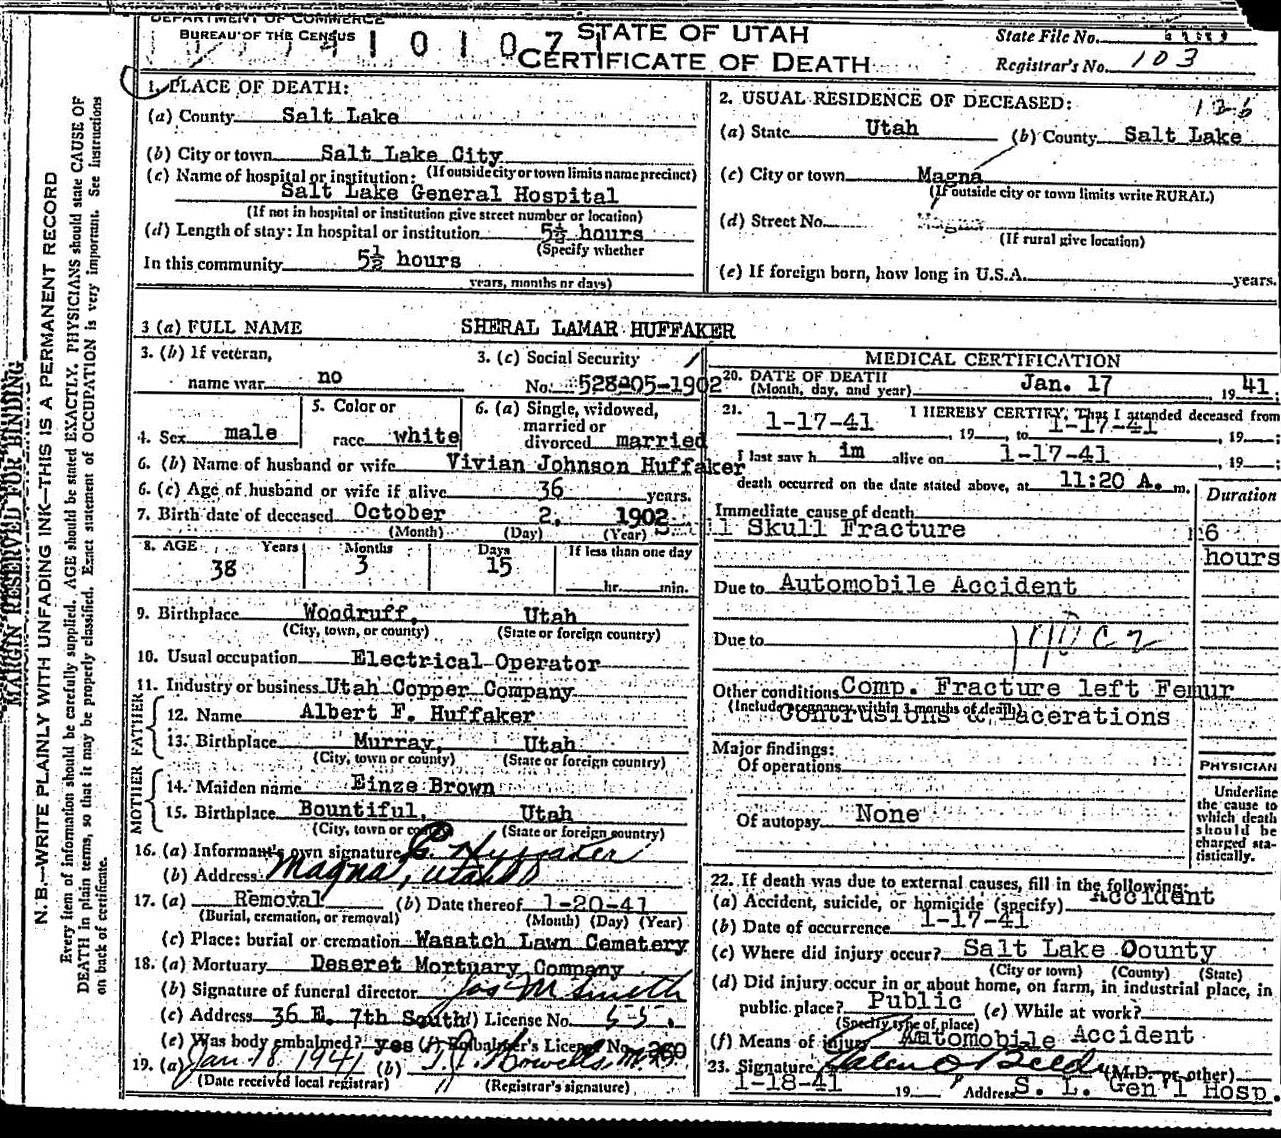 DEPARTMENT OF COMMERCE
BUREAU OF THE CENSUS
STATE OF UTAH
CERTIFICATE OF DEATH
State File No.
Registrar's No. 103
126
MARGIN RESERVED FOR BINDING
N. B.—WRITE PLAINLY WITH UNFADING INK—THIS IS A PERMANENT RECORD
Every item of information should be carefully supplied. AGE should be stated EXACTLY. PHYSICIANS should state CAUSE OF
DEATH in plain terms, so that it may be properly classified. Exact statement of OCCUPATION is very important. See Instructions
on back of certificate.
1. PLACE OF DEATH:
(a) County Salt Lake
(b) City or town Salt Lake City
(If outside city or town limits name precinct)
(c) Name of hospital or institution:
Salt Lake General Hospital
(If not in hospital or institution give street number or location)
(d) Length of stay: In hospital or institution 5½ hours
(Specify whether
In this community 5½ hours
years, months or days)
2. USUAL RESIDENCE OF DECEASED:
(a) State Utah (b) County Salt Lake
(c) City or town Magna
(If outside city or town limits write RURAL)
(d) Street No. Magna
(If rural give location)
(e) If foreign born, how long in U.S.A. years.
3 (a) FULL NAME SHERAL LAMAR HUFFAKER
3. (b) If veteran,
name war no
3. (c) Social Security
No. 528-05-1902
4. Sex male
5. Color or
race white
6. (a) Single, widowed,
married or
divorced married
6. (b) Name of husband or wife Vivian Johnson Huffaker
6. (c) Age of husband or wife if alive 36 years.
7. Birth date of deceased October 2, 1902
(Month) (Day) (Year)
8. AGE Years Months Days If less than one day
38 3 15 hr. min.
9. Birthplace Woodruff, Utah
(City, town, or county) (State or foreign country)
10. Usual occupation Electrical Operator
11. Industry or business Utah Copper Company
FATHER
12. Name Albert F. Huffaker
13. Birthplace Murray, Utah
(City, town or county) (State or foreign country)
MOTHER
14. Maiden name Einze Brown
15. Birthplace Bountiful, Utah
(City, town or county) (State or foreign country)
16. (a) Informant's own signature Huffaker
(b) Address Magna, Utah
17. (a) Removal (b) Date thereof 1-20-41
(Burial, cremation, or removal) (Month) (Day) (Year)
(c) Place: burial or cremation Wasatch Lawn Cemetery
18. (a) Mortuary Deseret Mortuary Company
(b) Signature of funeral director Jos M Smith
(c) Address 36 E. 7th South License No. 55
(e) Was body embalmed? yes (f) Embalmer's License No. 260
19. (a) Jan 18 1941 (b) T. J. Howells M.D.
(Date received local registrar) (Registrar's signature)
MEDICAL CERTIFICATION
20. DATE OF DEATH
(Month, day, and year) Jan. 17 1941
21. I HEREBY CERTIFY, That I attended deceased from
1-17-41, 19 to 1-17-41, 19 ;
I last saw h im alive on 1-17-41, 19 ;
death occurred on the date stated above, at 11:20 A. m.
Duration
Immediate cause of death
1 Skull Fracture 6
hours
Due to Automobile Accident
Due to
Other conditions Comp. Fracture left Femur
(Include pregnancy within 3 months of death)
Contrusions & Lacerations
Major findings:
Of operations
Of autopsy None
PHYSICIAN
Underline
the cause to
which death
should be
charged sta-
tistically.
22. If death was due to external causes, fill in the following:
(a) Accident, suicide, or homicide (specify) Accident
(b) Date of occurrence 1-17-41
(c) Where did injury occur? Salt Lake County
(City or town) (County) (State)
(d) Did injury occur in or about home, on farm, in industrial place, in
public place? Public (e) While at work?
(Specify type of place)
(f) Means of injury Automobile Accident
23. Signature (M.D. or other)
1-18-41 19 Address S. L. Gen'l Hosp.